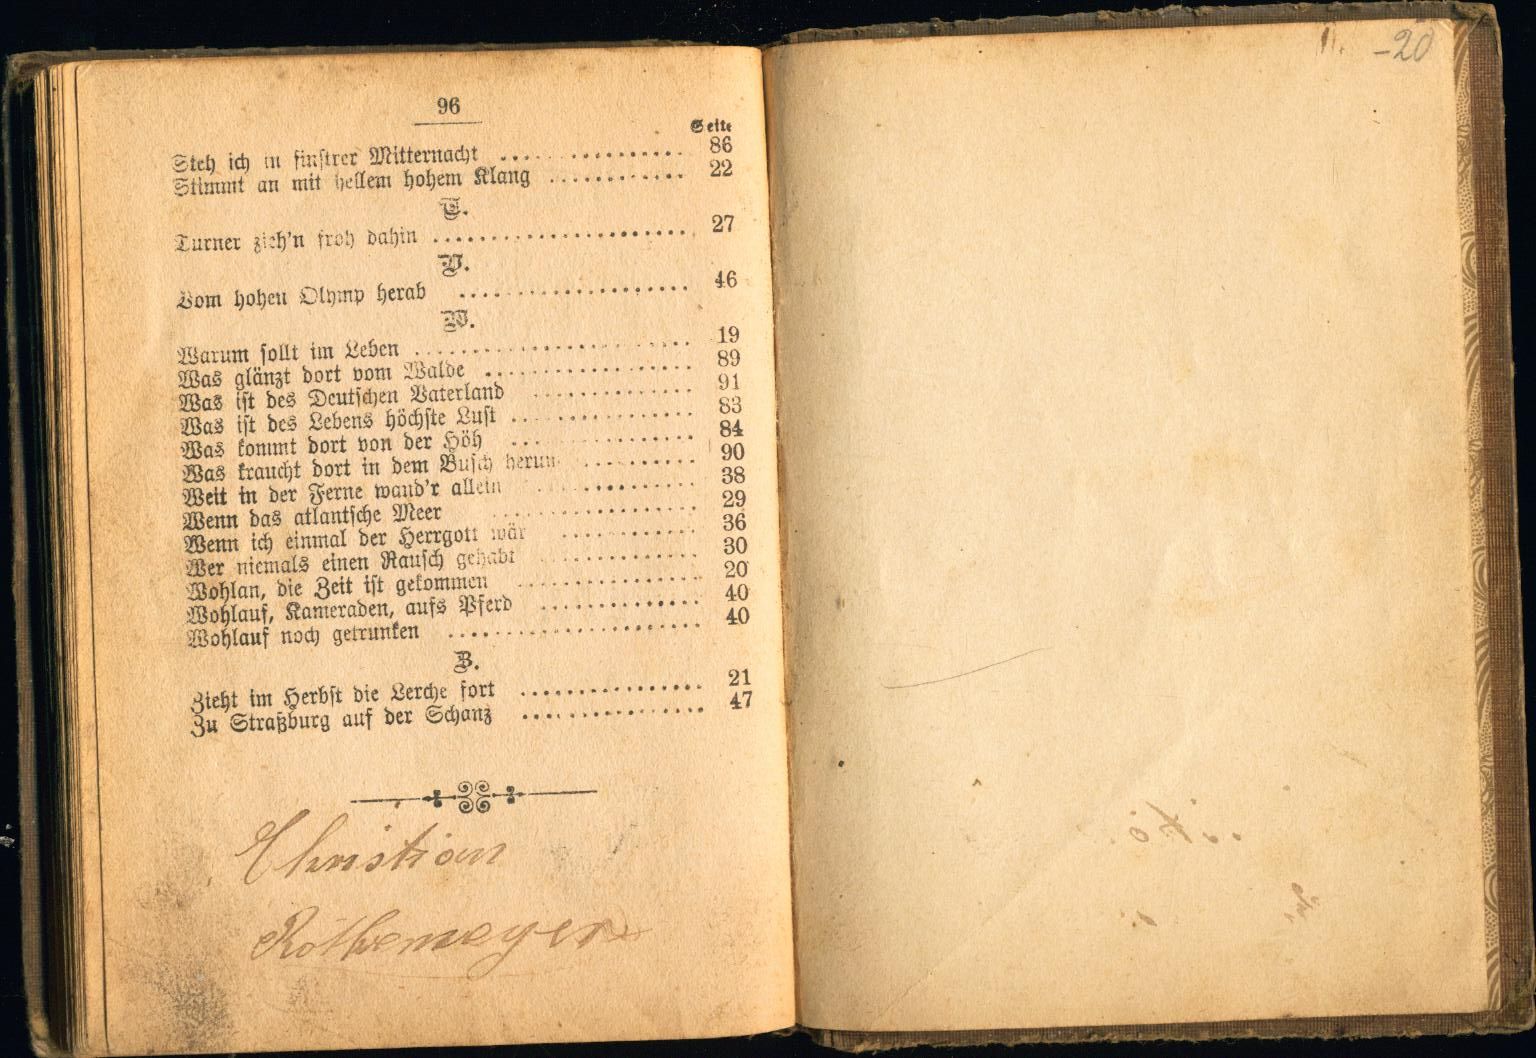 96
Seite
Steh ich in finstrer Mitternacht . . . . . . . . . . . . . . 86
Stimmt an mit hellem hohem Klang . . . . . . . . . . . . 22
T.
Turner zieh'n froh dahin . . . . . . . . . . . . . . . . . . . . 27
V.
Vom hohen Olymp herab . . . . . . . . . . . . . . . . . . 46
W.
Warum sollt im Leben . . . . . . . . . . . . . . . . . . . . . 19
Was glänzt dort vom Walde . . . . . . . . . . . . . . . . 89
Was ist des Deutschen Vaterland . . . . . . . . . . . . 91
Was ist des Lebens höchste Lust . . . . . . . . . . . . . 83
Was kommt dort von der Höh . . . . . . . . . . . . . . 84
Was kraucht dort in dem Busch herum . . . . . . . . . 90
Weit in der Ferne wand'r allein . . . . . . . . . . . . . 38
Wenn das atlantsche Meer . . . . . . . . . . . . . . . . 29
Wenn ich einmal der Herrgott wär . . . . . . . . . . . 36
Wer niemals einen Rausch gehabt . . . . . . . . . . . . 30
Wohlan, die Zeit ist gekommen . . . . . . . . . . . . . 20
Wohlauf, Kameraden, aufs Pferd . . . . . . . . . . . . 40
Wohlauf noch getrunken . . . . . . . . . . . . . . . . . . 40
Z.
Zieht im Herbst die Lerche fort . . . . . . . . . . . . . . 21
Zu Straßburg auf der Schanz . . . . . . . . . . . . . . . 47
Christian
Rothemeyer
-20